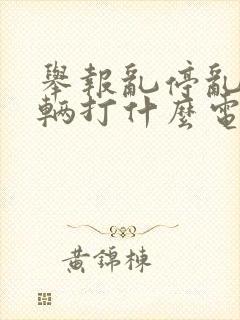 舉報亂停亂
輛打什麼電
黃錦棟